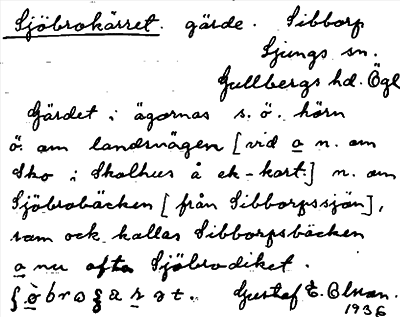 Sjöbrokärret. gärde. Sibborp
Ljungs sn.
Gullbergs hd. Ögl
Gärdet i ägornas s. ö. hörn
ö. om landsvägen [vid o n. om
Sko i Skolhus å ek-kart.] n. om
Sjöbrobäcken [från Sibborpssjön],
som ock kallas Sibborpsbäcken
o nu ofta Sjöbrodiket.
Gustaf E. Olson.
1936